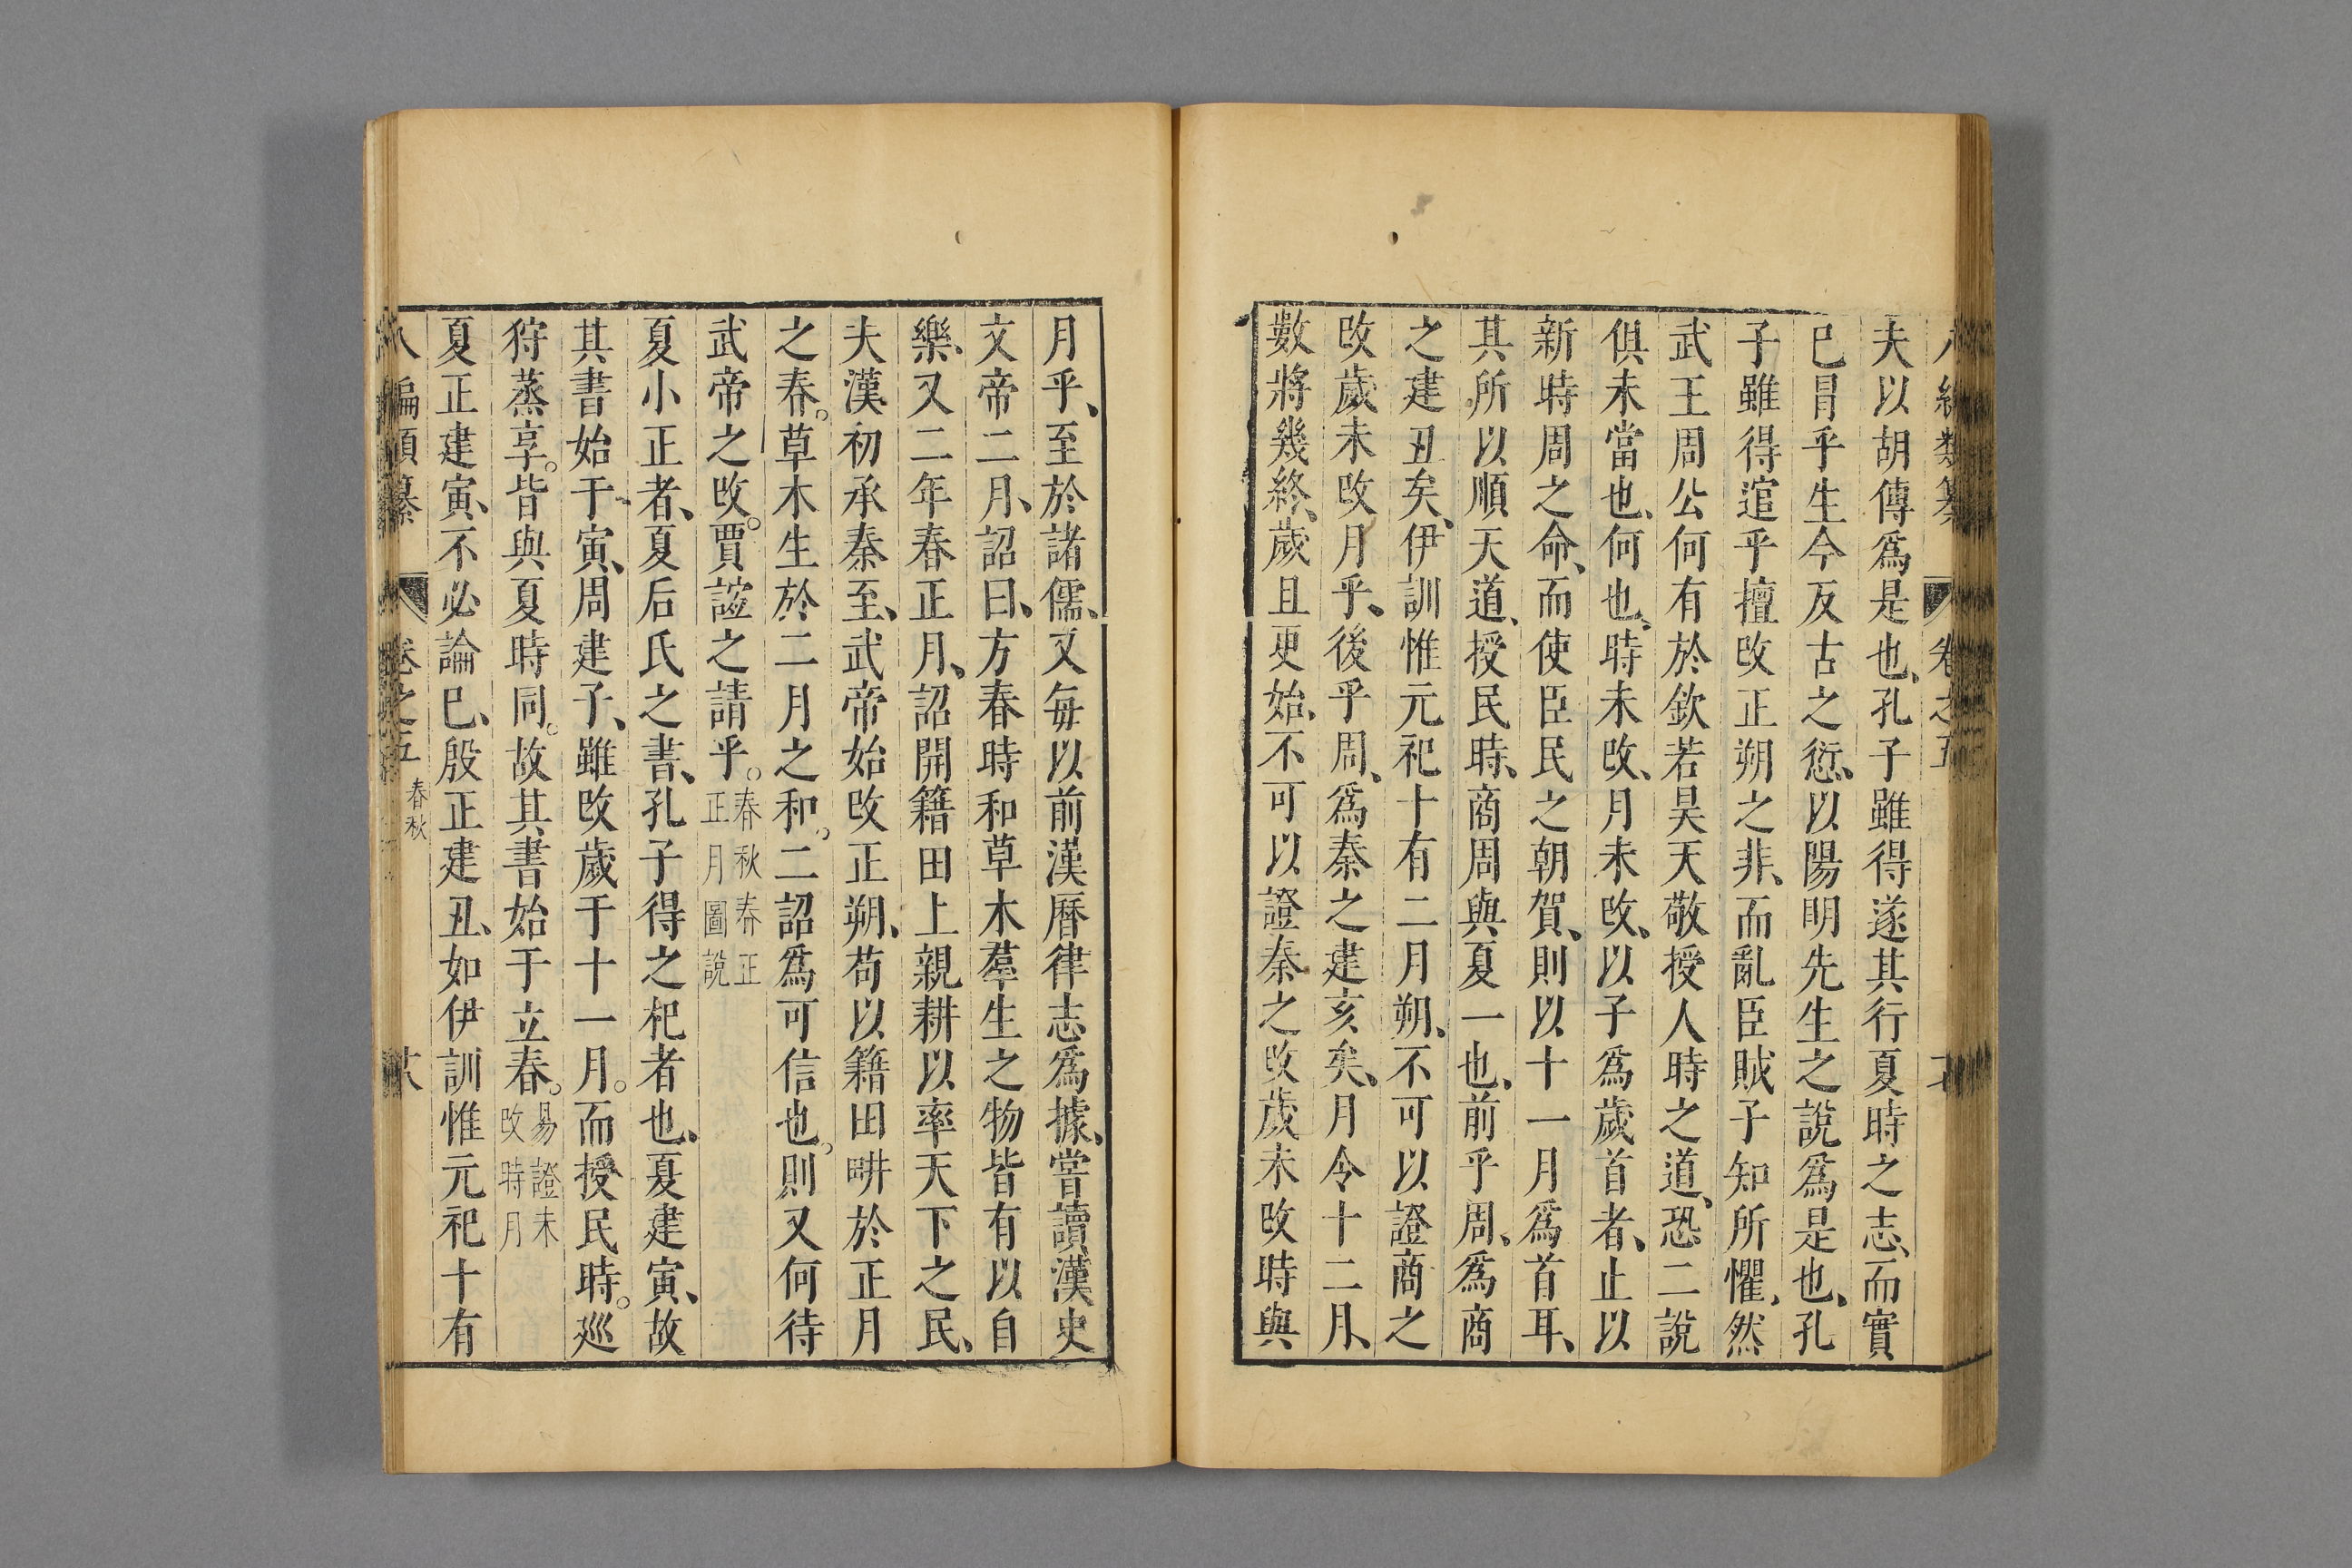 夫以胡傳爲是也、孔子雖得遂其行夏時之志、而實
已冒乎生今反古之愆、以陽明先生之說爲是也、孔
子雖得逭乎擅改正朔之非、而亂臣賊子知所懼、然
武王周公何有於欽若昊天敬授人時之道、恐二說
俱未當也、何也、時未改、月未改、以子爲歲首者、止以
新時周之命、而使臣民之朝賀、則以十一月爲首耳、
其所以順天道、授民時、商周與夏一也、前乎周、爲商
之建丑矣、伊訓惟元祀十有二月朔、不可以證商之
改歲未改月乎、後乎周、爲秦之建亥矣、月令十二月、
數將幾終、歲且更始、不可以證秦之改歲未改時與
月乎、至於諸儒、又每以前漢曆律志爲據、嘗讀漢史
文帝二月、詔曰、方春時和草木羣生之物皆有以自
樂、又二年春正月、詔開籍田上親耕以率天下之民、
夫漢初承秦至、武帝始改正朔、苟以籍田畊於正月
之春。草木生於二月之和。二詔爲可信也、則又何待
武帝之改。賈誼之請乎。春秋春正
正月圖說
夏小正者、夏后氏之書、孔子得之杞者也、夏建寅、故
其書始于寅、周建子、雖改歲于十一月。而授民時。巡
狩蒸享。皆與夏時同。故其書始于立春。易證未
改時月
夏正建寅、不必論已、殷正建丑、如伊訓惟元祀十有
八編類纂 卷之五 春秋